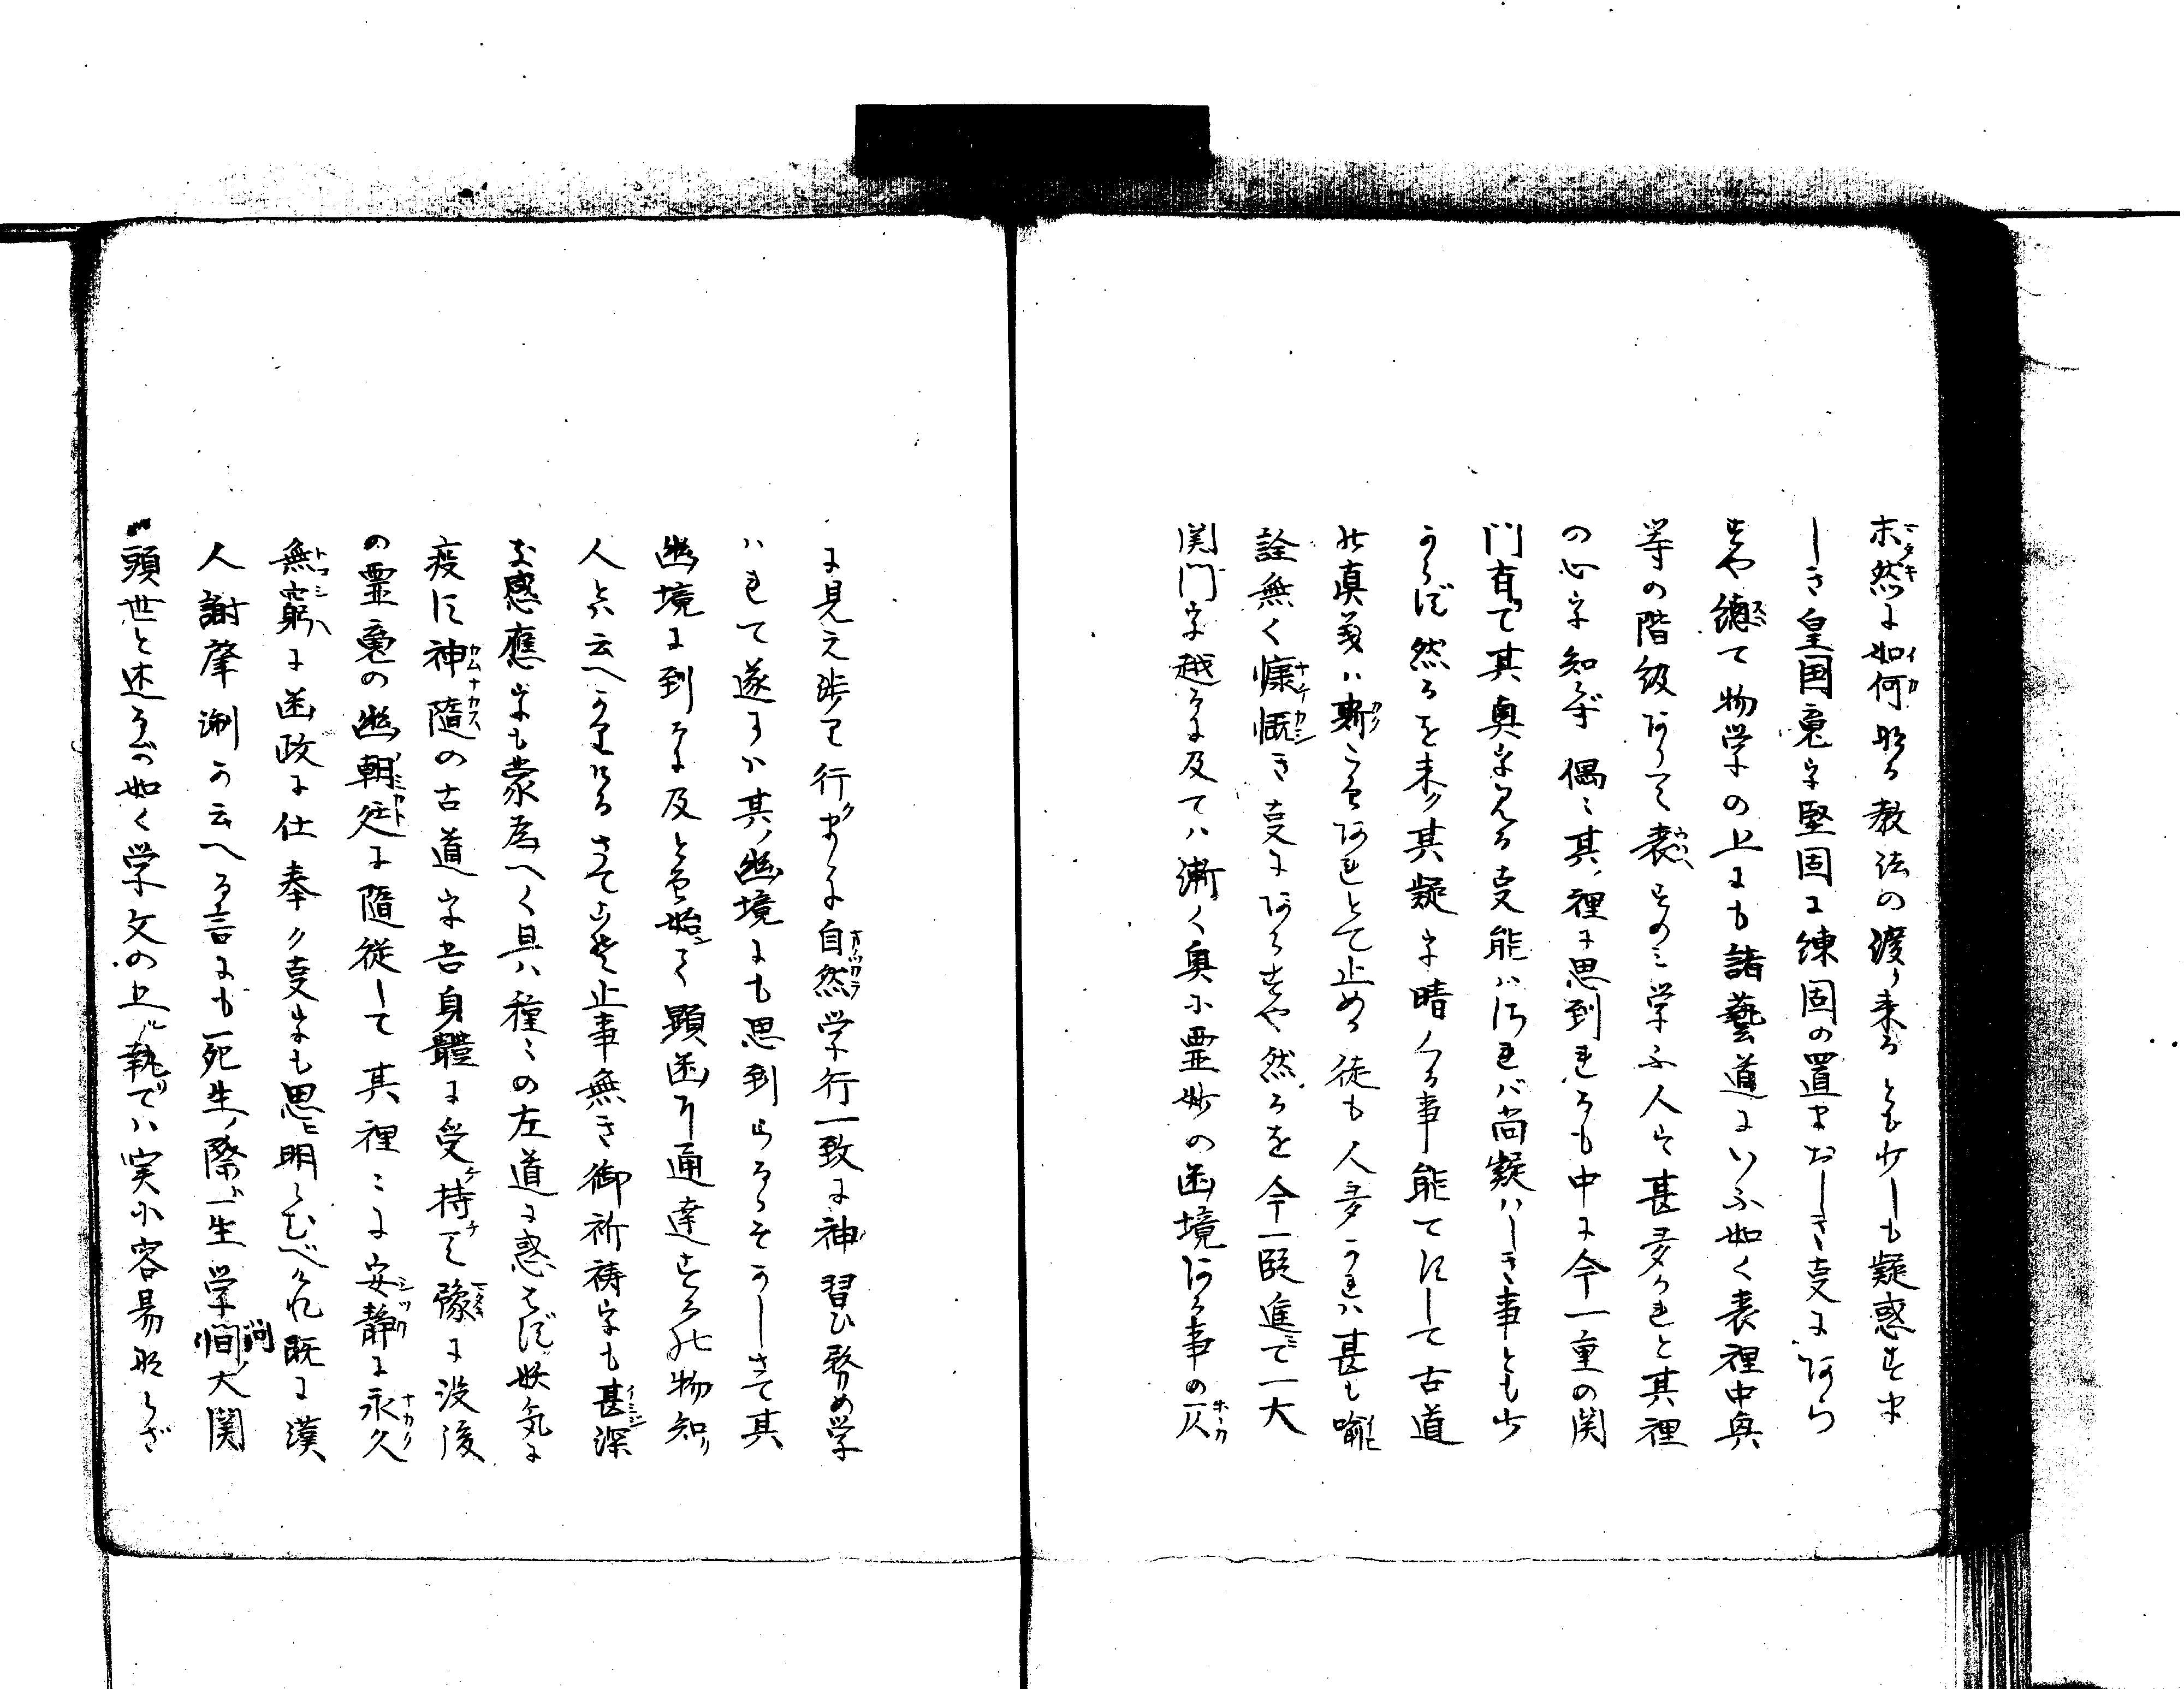 未然に如何なる教法の渡り来るとも少しも疑惑すま
しき皇国魂を堅固に練固め置まおしき事にあら
すや總て物学の上にも諸藝道にいふ如く表裡中奥
等の階級ありて表すのミ学ふ人は甚多かれと其裡
の心を知らず偶々其裡に思到れるも中に今一重の関
門有て其奥を見る事能ハされバ尚疑ハしき事とも少
からず然るを未タ其疑を晴くる事能てにして古道
の真義ハ斯こそあれとて止める徒も人多かるハ甚も喩
詮無く慷慨き事にあらすや然るを今一段進で一大
関門を越るに及てハ漸く奥に霊妙の幽境ある事の仄
に見え渉り行クまゝに自然学行一致に神習ひ務め学
ハれて遂にハ其ノ幽境にも思到らるゝそかしさて其
幽境に到るに及とそ始て顕幽に通達する物知り
人とハ云へかりけるさてこそ止事無き御祈祷をも甚深
な感應をも蒙為へく具ハ種々の左道に惑はず妖気に
疫に神隨の古道を吾身體に受ケ持チて豫に没後
の霊魂の幽朝廷に隨従して其裡々に安静に永久
無窮に幽政に仕奉ル事をも思ヒ明らむべけれ既に漢
人謝肇淛か云へる言にも死生ノ際ハ一生学問ノ大関
頭世と述るが如く学文の上ニ執てハ実に容易ならざ